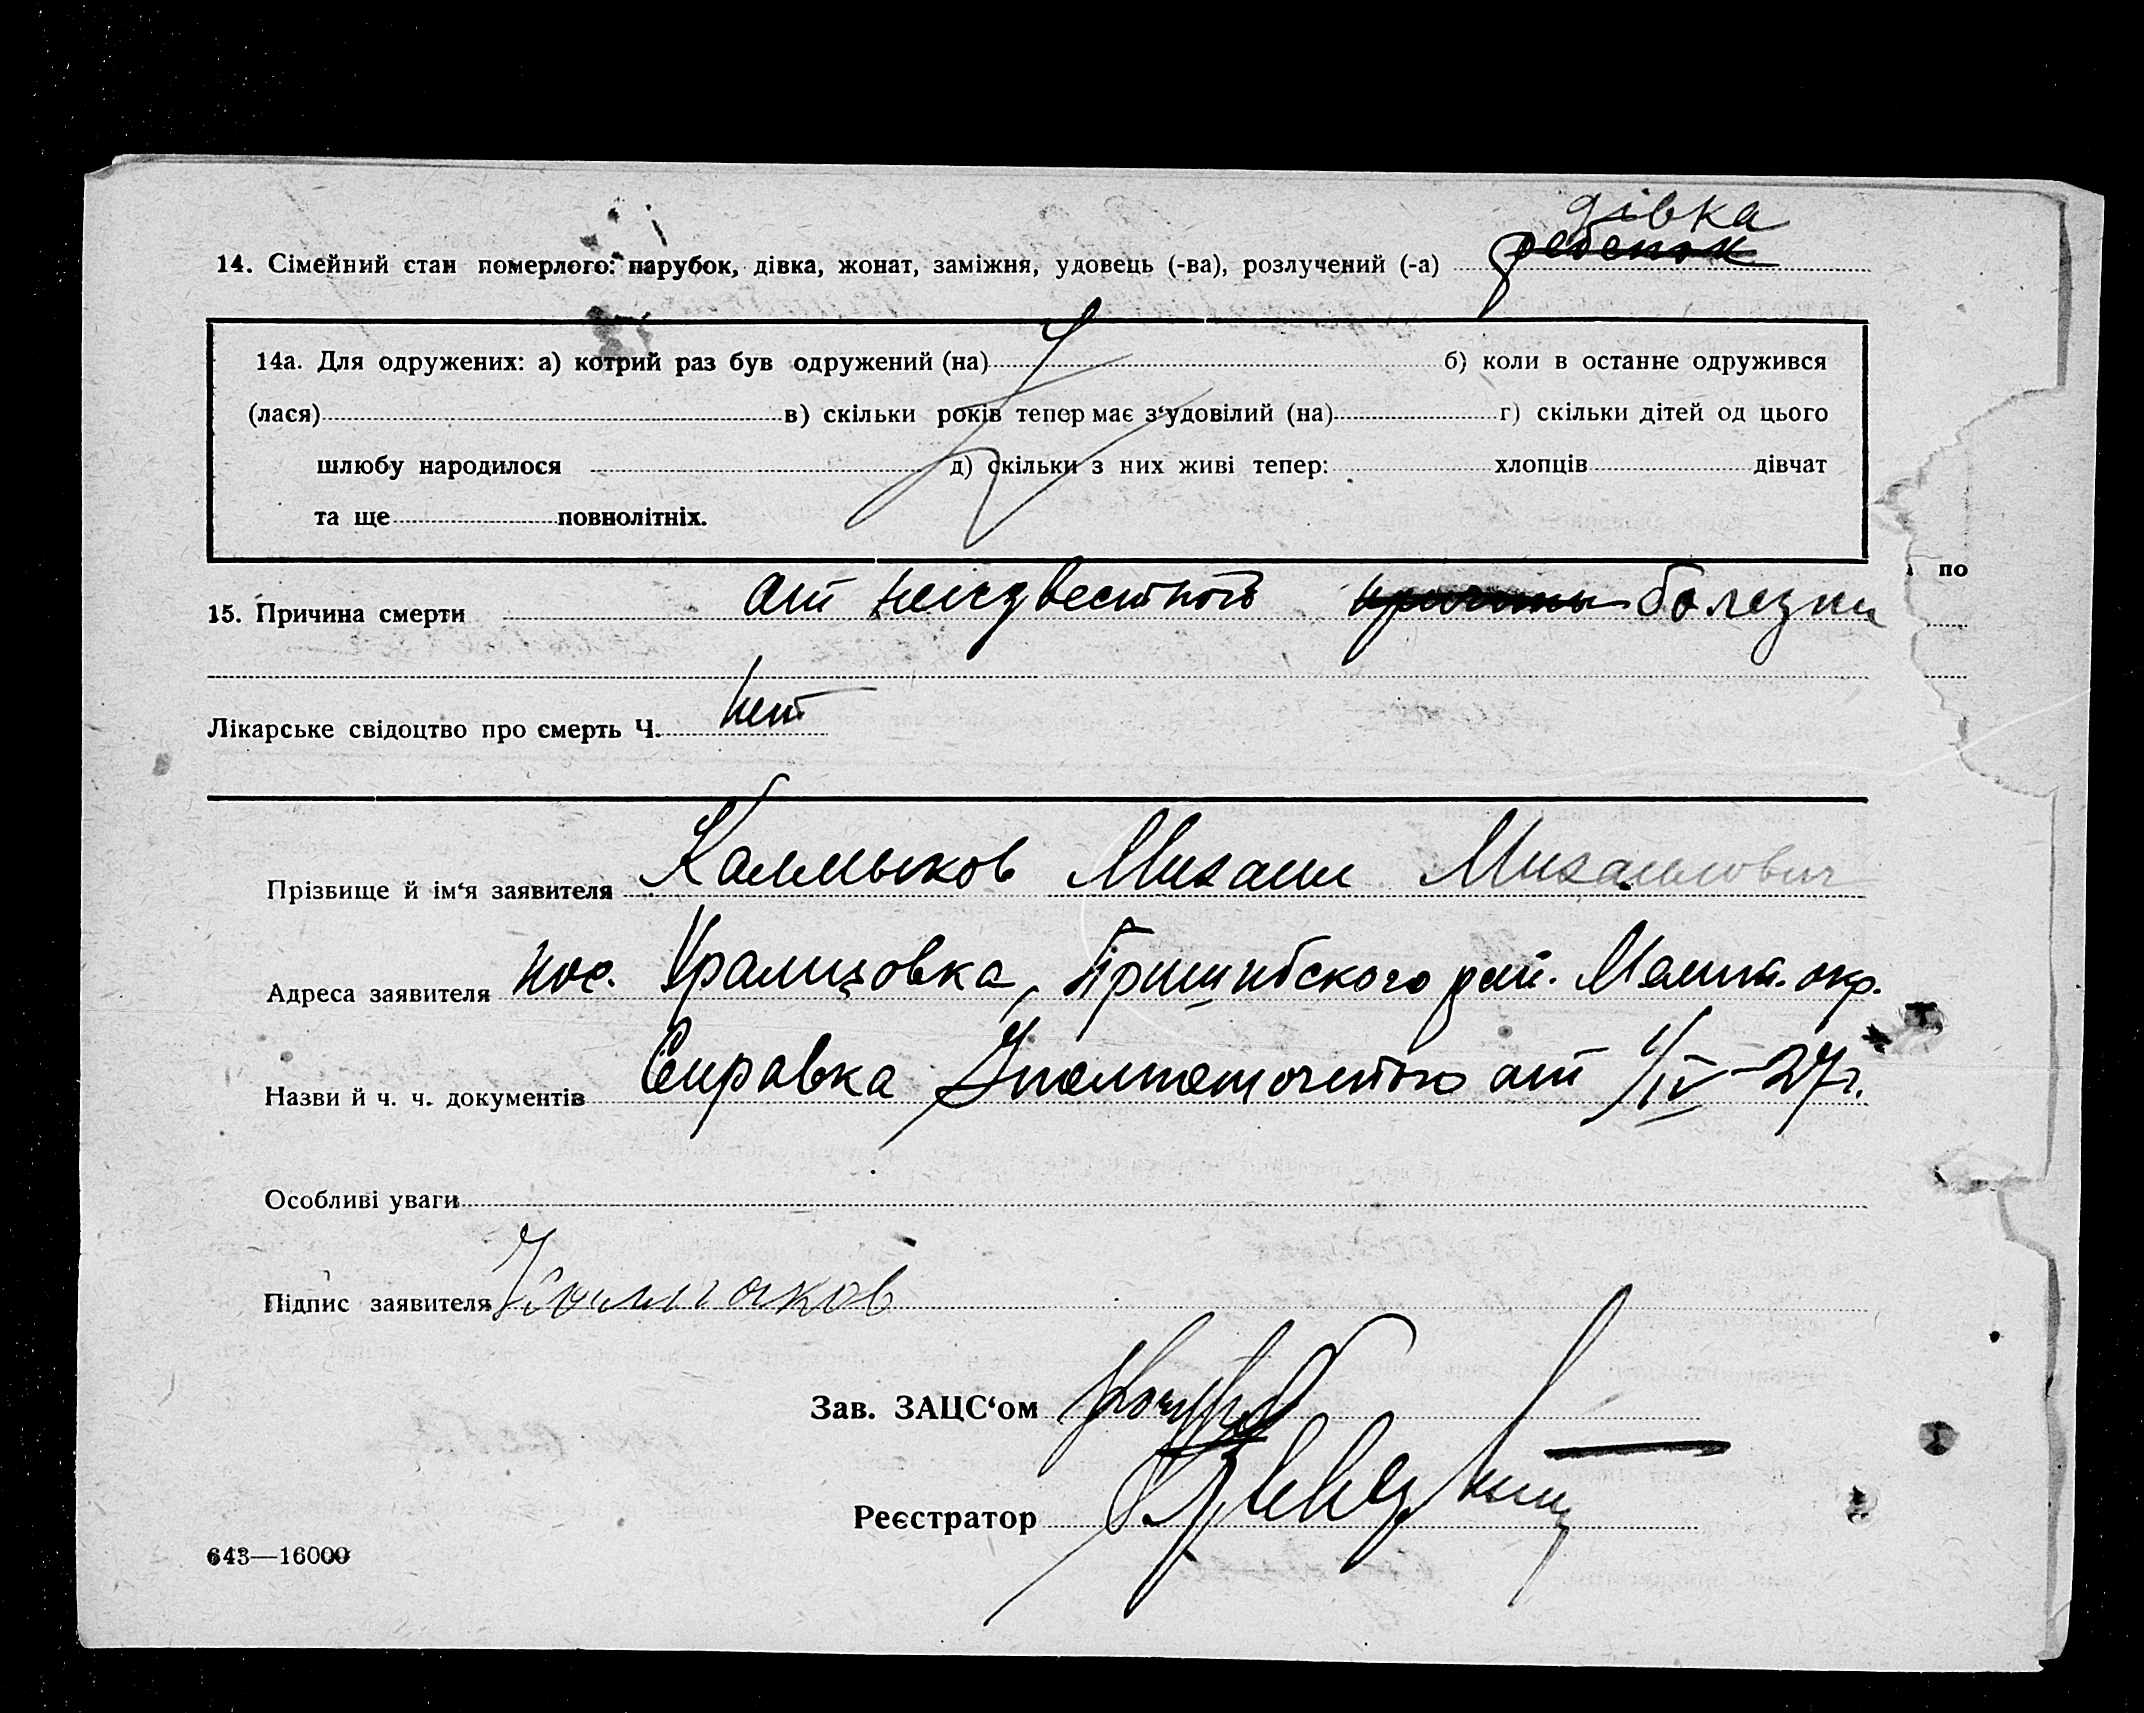 дівка
14. Сімейний стан померлого: парубок, дівка, жонат, заміжня, удовець (-ва), розлучений (-а) ребенок
14а. Для одружених: а) котрий раз був одружений (на) б) коли в останне одружився
(лася) в) скільки років тепер має з‘удовілий (на) г) скільки дітей од цього
шлюбу народилося д) скільки з них живі тепер: хлопців дівчат
та ще повнолітніх.
по
15. Причина смерти от неизвестной причины болезни
Лікарське свідоцтво про смерть Ч. нет
Прізбище й ім‘я заявителя Калмыков Михаил Михаилович
Адреса заявителя пос. Уралцовка, Пришибского рай. Мелит. окр.
Назви й ч. ч. документів Справка от 1/IV-27 г.
Особливі уваги
Підпис заявителя Калмыков
Зав. ЗАЦС‘ом
Реєстратор
643—16000